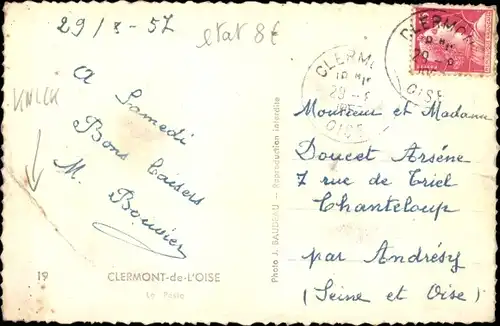 29/8-57
etat 8€
KNICK
A Samedi
Bons baisers
M. Bouvier
19
CLERMONT-de-L'OISE
La Poste
Photo J. BAUDEAU - Reproduction Interdite
CLERMONT
29-8
OISE
CLERMONT
29-8
OISE
Monsieur et Madame
Doucet Arsène
7 rue de Triel
Chanteloup
par Andrésy
(Seine et Oise)